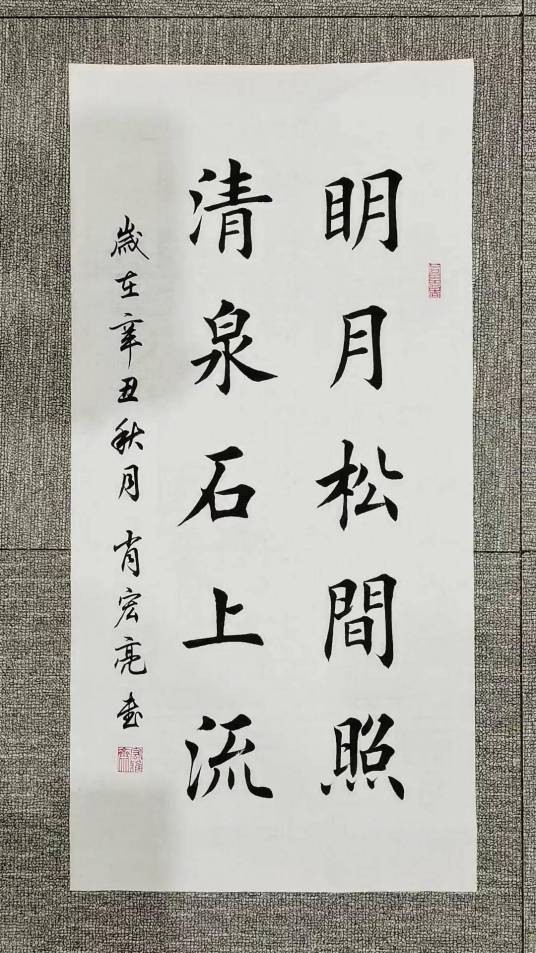 明月松間照
清泉石上流
歲在辛丑秋月肖宏亮書